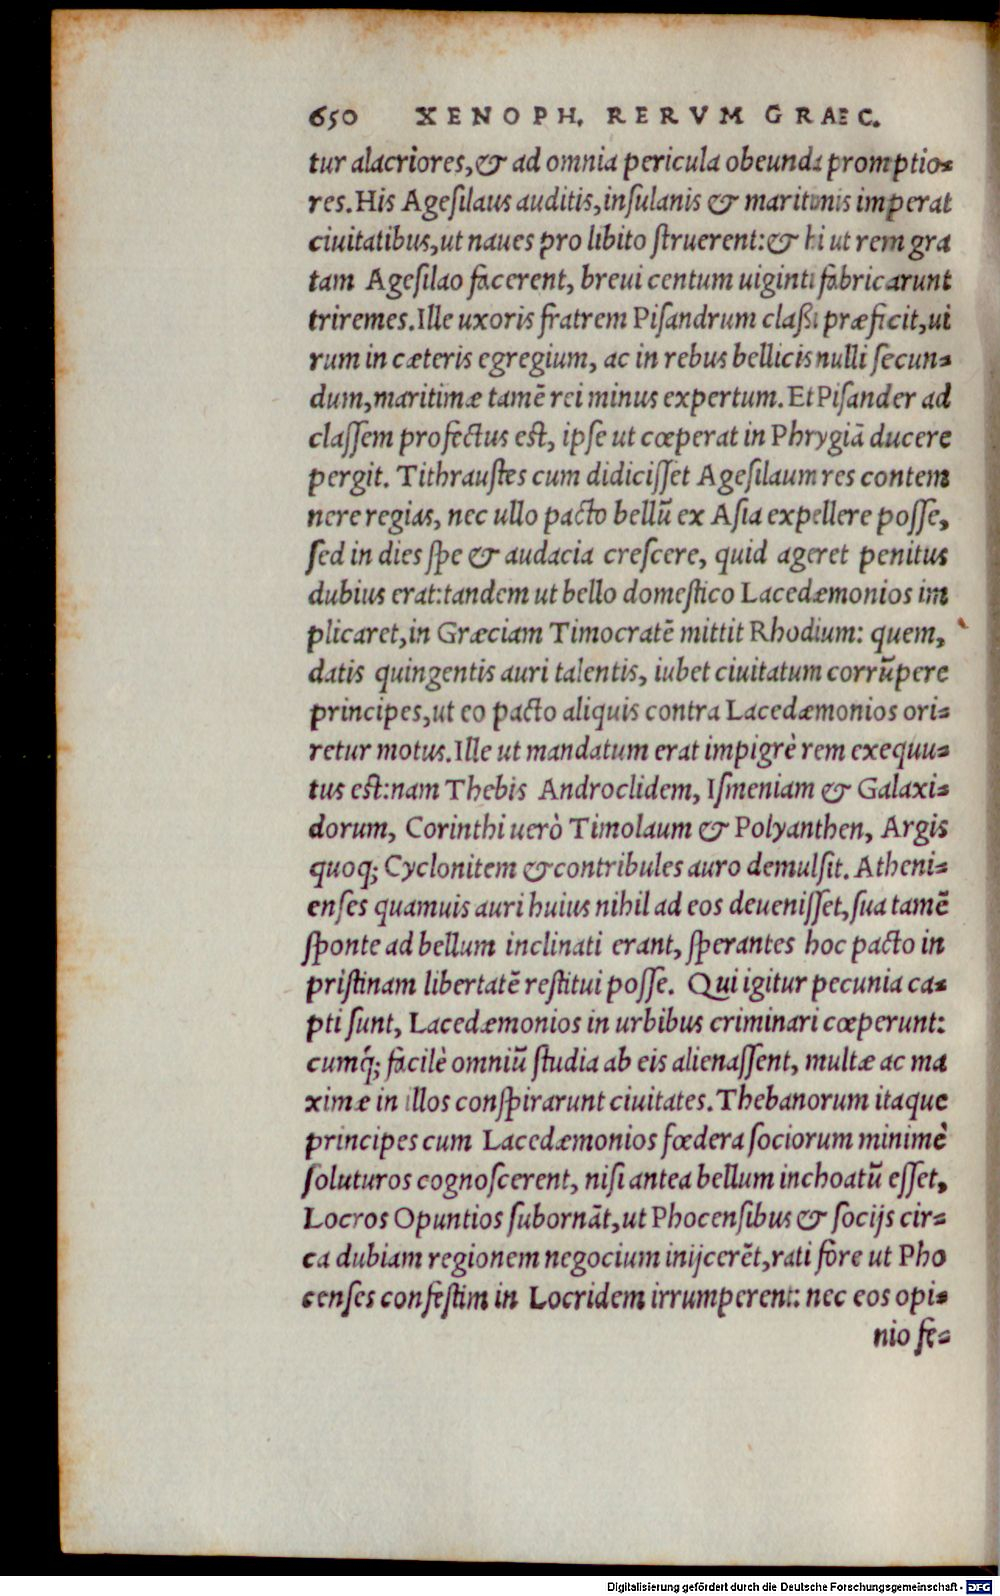 650 XENOPH. RERVM GRAEC.
tur alacriores, & ad omnia pericula obeunda promptio-
res. His Agesilaus auditis, insulanis & maritimis imperat
ciuitatibus, ut naues pro libito struerent: & hi ut rem gra
tam Agesilao facerent, breui centum uiginti fabricarunt
triremes. Ille uxoris fratrem Pisandrum classi præficit, ui
rum in cæteris egregium, ac in rebus bellicis nulli secun-
dum, maritimæ tamẽ rei minus expertum. Et Pisander ad
classem profectus est, ipse ut cœperat in Phrygiã ducere
pergit. Tithraustes cum didicisset Agesilaum res contem
nere regias, nec ullo pacto bellũ ex Asia expellere posse,
sed in dies spe & audacia crescere, quid ageret penitus
dubius erat: tandem ut bello domestico Lacedæmonios im
plicaret, in Græciam Timocratẽ mittit Rhodium: quem,
datis quingentis auri talentis, iubet ciuitatum corrũpere
principes, ut eo pacto aliquis contra Lacedæmonios ori-
retur motus. Ille ut mandatum erat impigrè rem exequu-
tus est: nam Thebis Androclidem, Ismeniam & Galaxi-
dorum, Corinthi uerò Timolaum & Polyanthen, Argis
quoq; Cyclonitem & contribules auro demulsit. Atheni-
enses quamuis auri huius nihil ad eos deuenisset, sua tamẽ
sponte ad bellum inclinati erant, sperantes hoc pacto in
pristinam libertatẽ restitui posse. Qui igitur pecunia ca-
pti sunt, Lacedæmonios in urbibus criminari cœperunt:
cumq́; facilè omniũ studia ab eis alienassent, multæ ac ma
ximæ in illos conspirarunt ciuitates. Thebanorum itaque
principes cum Lacedæmonios fœdera sociorum minimè
soluturos cognoscerent, nisi antea bellum inchoatũ esset,
Locros Opuntios subornãt, ut Phocensibus & socijs cir-
ca dubiam regionem negocium inijcerẽt, rati fore ut Pho
censes confestim in Locridem irrumperent: nec eos opi-
nio fe-
Digitalisierung gefördert durch die Deutsche Forschungsgemeinschaft - DFG